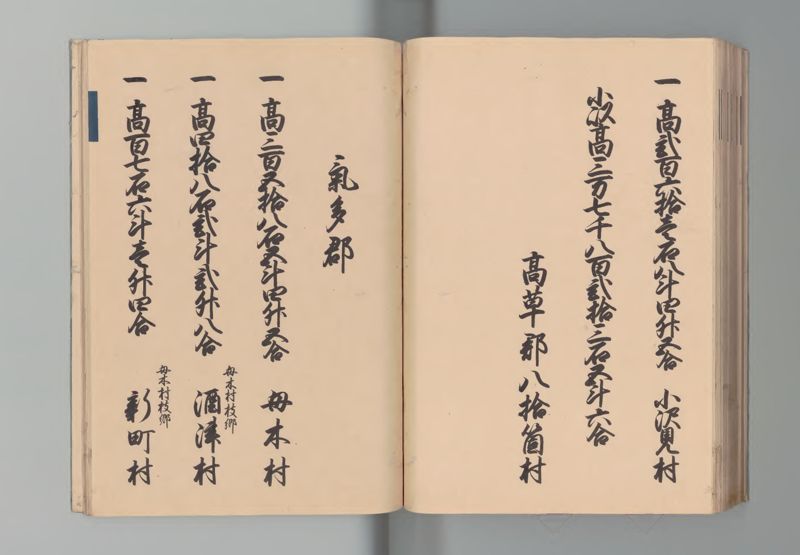 一 高弐百六拾壱石八斗四升五合 小沢見村
小以高三万七千八百弐拾三石五斗六合
高草郡八拾箇村
氣多郡
一 高三百五拾八石五斗四升五合 母木村
一 高四拾八石弐斗弐升八合 母木村枝郷 酒津村
一 高百七石六斗壱升四合 母木村枝郷 新町村